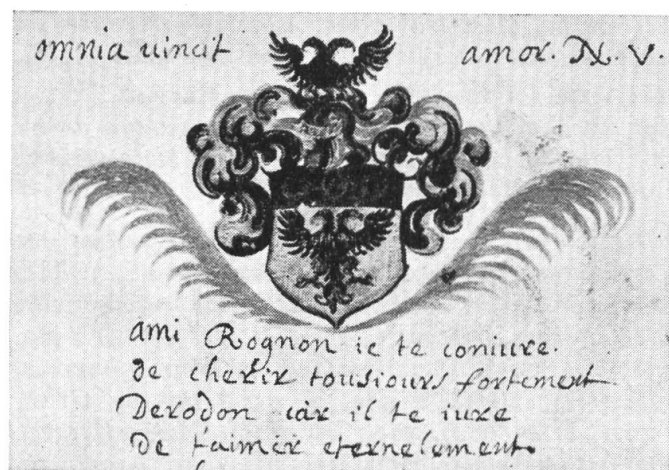 omnia uincit amor. N. V.
ami Rognon ie te coniure.
de cherir tousiours fortement
Derodon càr il te iure
de t'aimer eternelement.